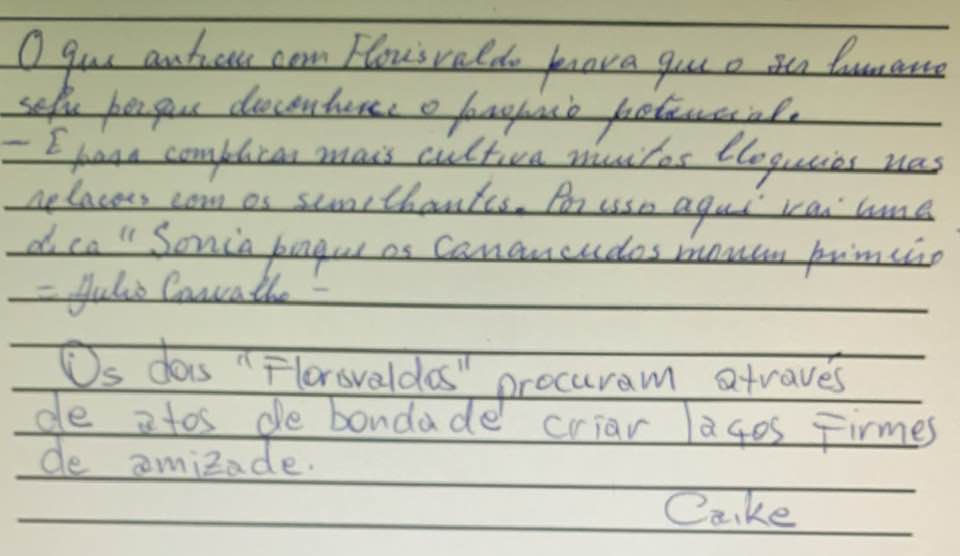 O que antecu com Florisvaldo prova que o ser humano
sofre porque desconhece o proprio potencial.
- E para complicar mais cultiva muitos bloqueios nas
relacoes com os semelhantes. Por isso aqui vai uma
dica "Sonia porque os carrancudos morrem primeiro
= Julio Carvalho -
Os dois "Florisvaldos" procuram através
de atos de bondade criar laços firmes
de amizade.
Caike